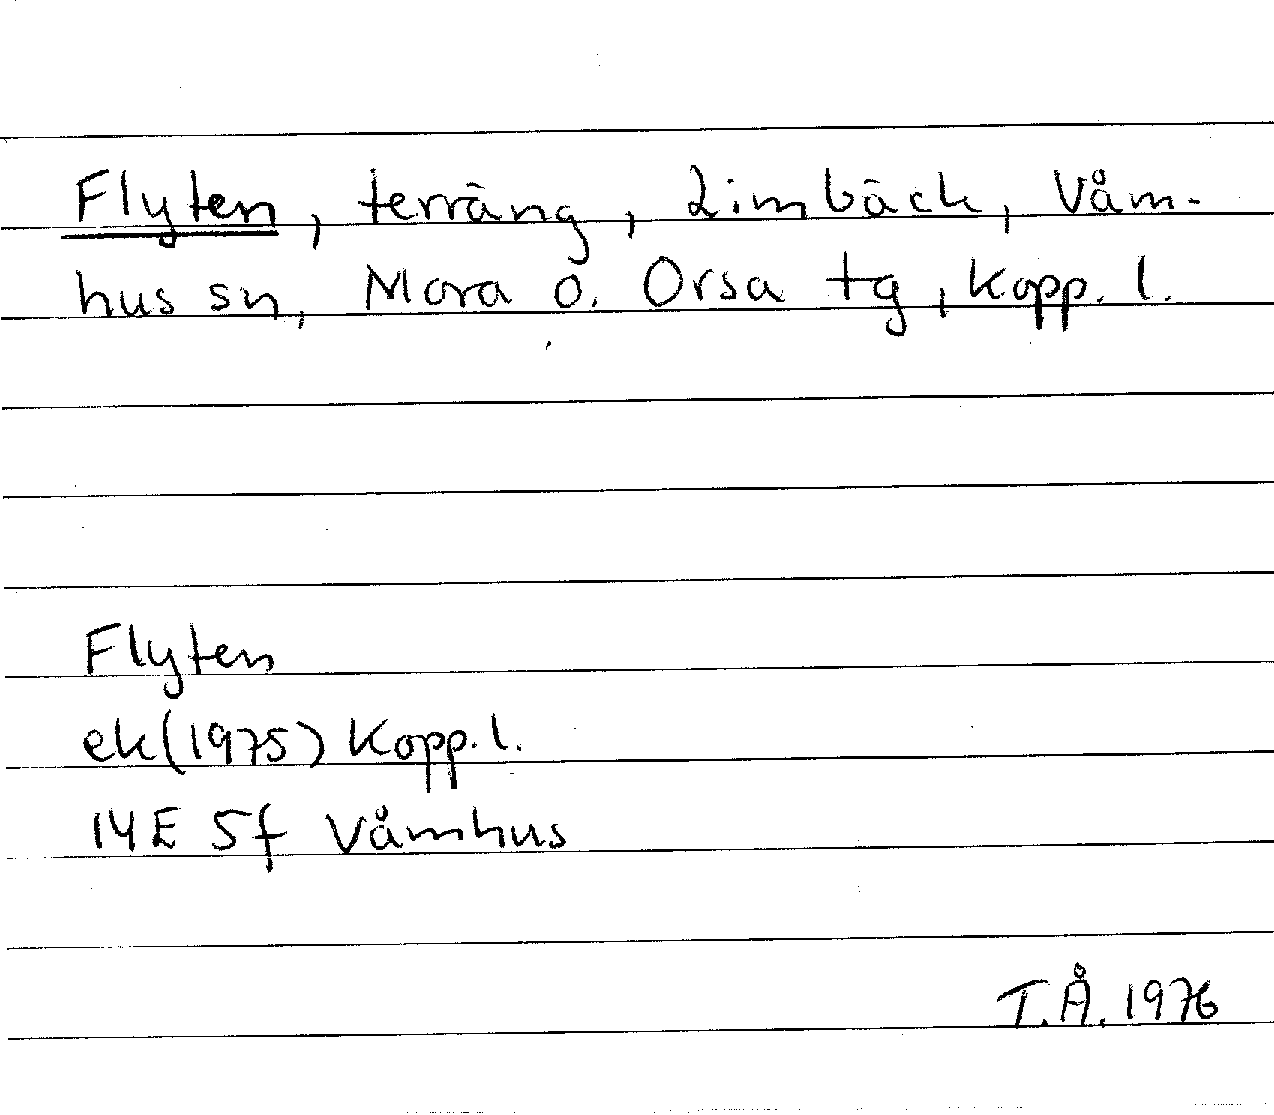 Flyten, terräng, Limbäck, Våm-
hus sn, Mora o. Orsa tg, Kopp. l.
Flyten
ek (1975) Kopp. l.
14E 5f Våmhus
T.Å. 1976